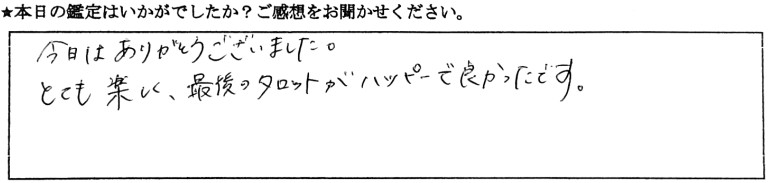 ★本日の鑑定はいかがでしたか？ご感想をお聞かせください。
今日はありがとうございました。
とても楽しく、最後のタロットがハッピーで良かったです。